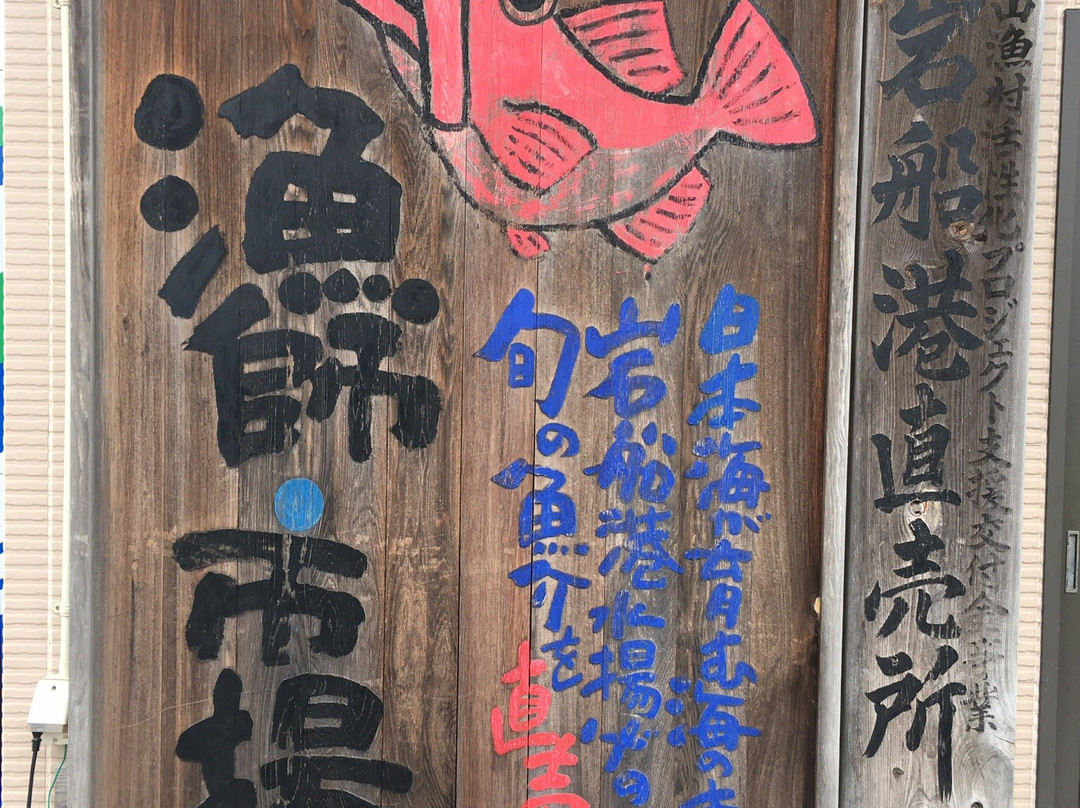 山漁村活性化プロジェクト支援交付金事業
岩船港直売所
日本海が育む海の
岩船港水揚げの
旬の魚介を直売
漁師市場